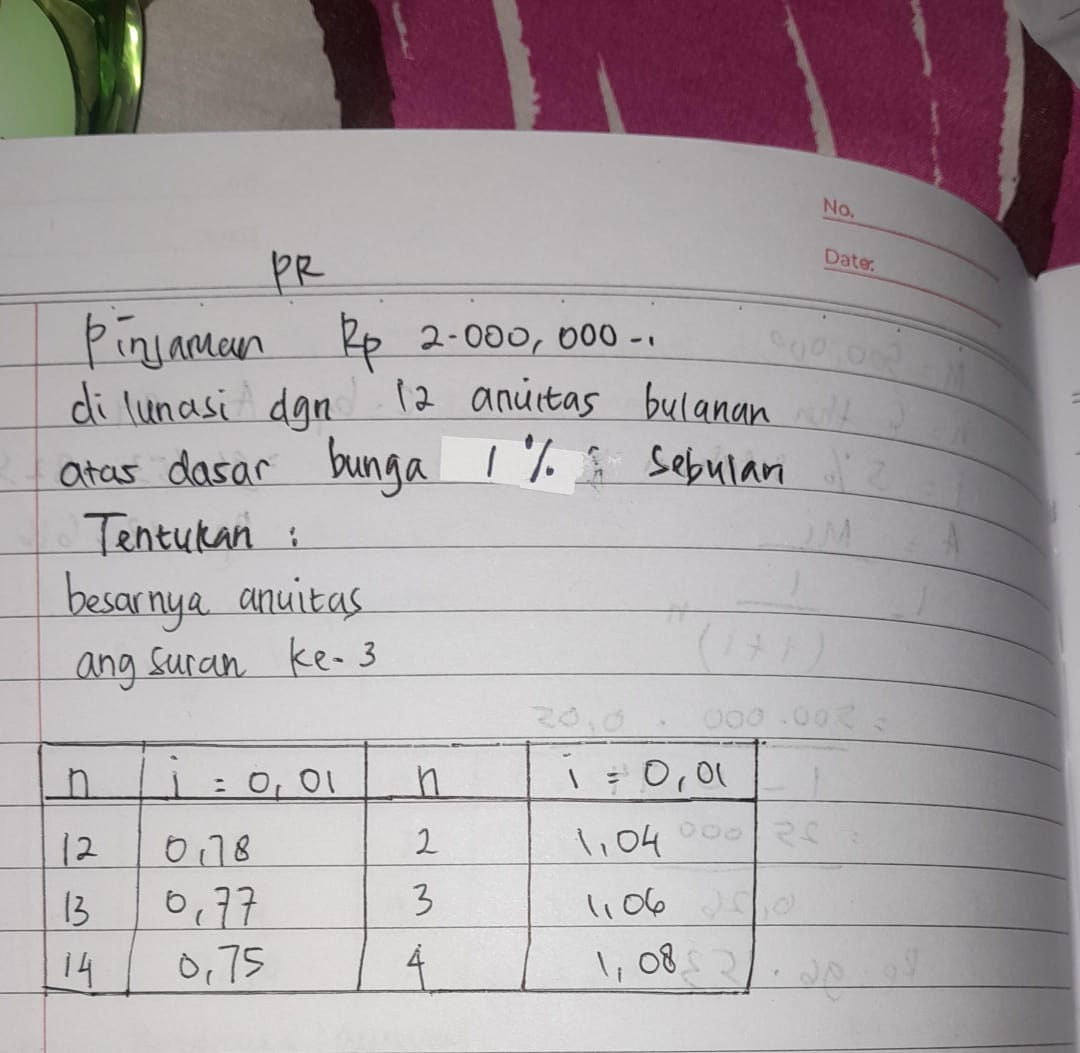 No.
Date:
PR
Pinjaman Rp 2.000,000-.
dilunasi dgn 12 anuitas bulanan
atas dasar bunga 1% sebulan
Tentukan :
besarnya anuitas
angsuran ke-3
n i = 0,01 n i = 0,01
12 0,78 2 1,04
13 0,77 3 1,06
14 0,75 4 1,08